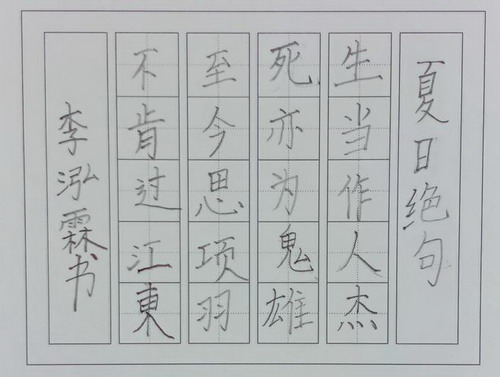 夏日绝句
生当作人杰
死亦为鬼雄
至今思项羽
不肯过江東
李泓霖书